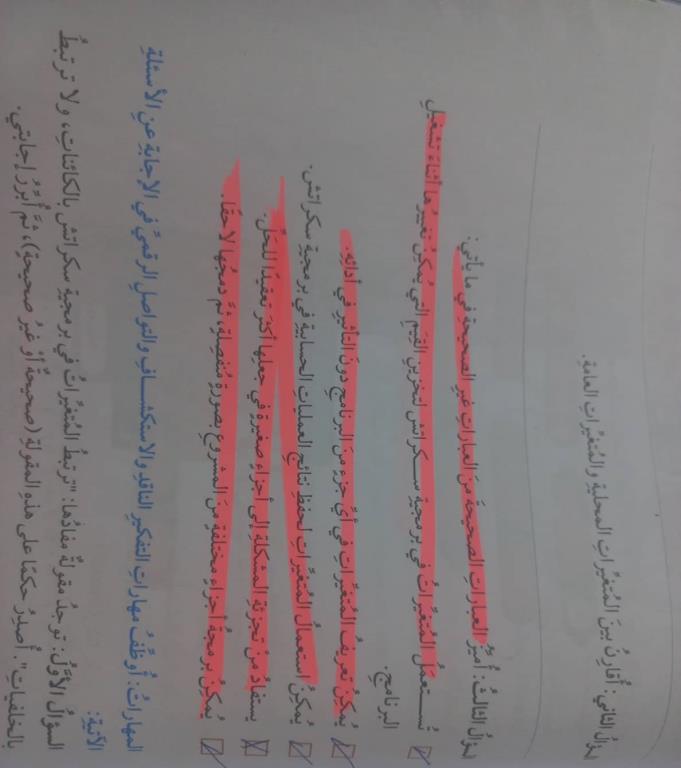 السؤال الثاني: أُقارِنُ بينَ المُتغيِّراتِ المحليةِ والمُتغيِّراتِ العامةِ.
السؤال الثالثُ: أُميِّزُ العباراتِ الصحيحةَ منَ العباراتِ غيرِ الصحيحةِ في ما يأتي:
تُستعمَلُ المُتغيِّراتُ في برمجيةِ سكراتش لتخزينِ القِيَمِ التي يُمكِنُ تغييرُها أثناءَ تشغيلِ
البرنامجِ.
يُمكِنُ تعريفُ المُتغيِّراتِ في أيِّ جزءٍ منَ البرنامجِ دونَ التأثيرِ في أدائِهِ.
يُمكِنُ استعمالُ المُتغيِّراتِ لحفظِ نتائجِ العملياتِ الحسابيةِ في برمجيةِ سكراتش.
يُستفادُ منْ تجزئةِ المشكلةِ إلى أجزاءٍ صغيرةٍ في جعلِها أكثرَ تعقيدًا للحَلِّ.
يُمكِنُ برمجةُ أجزاءٍ مختلفةٍ منَ المشروعِ بصورةٍ مُنفصِلةٍ، ثمَّ دمجُها لاحقًا.
المهاراتُ: أُوظِّفُ مهاراتِ التفكيرِ الناقدِ والاستكشافِ والتواصلِ الرقميِّ في الإجابةِ عنِ الأسئلةِ
الآتيةِ:
السؤالُ الأوَّلُ: توجدُ مقولةٌ مفادُها: "ترتبطُ المُتغيِّراتُ في برمجيةِ سكراتش بالكائناتِ، ولا ترتبطُ
بالخلفياتِ". أُصدِرُ حكمًا على هذهِ المقولةِ (صحيحةٌ أوْ غيرُ صحيحةٍ)، ثمَّ أُبرِّرُ إجابتي.